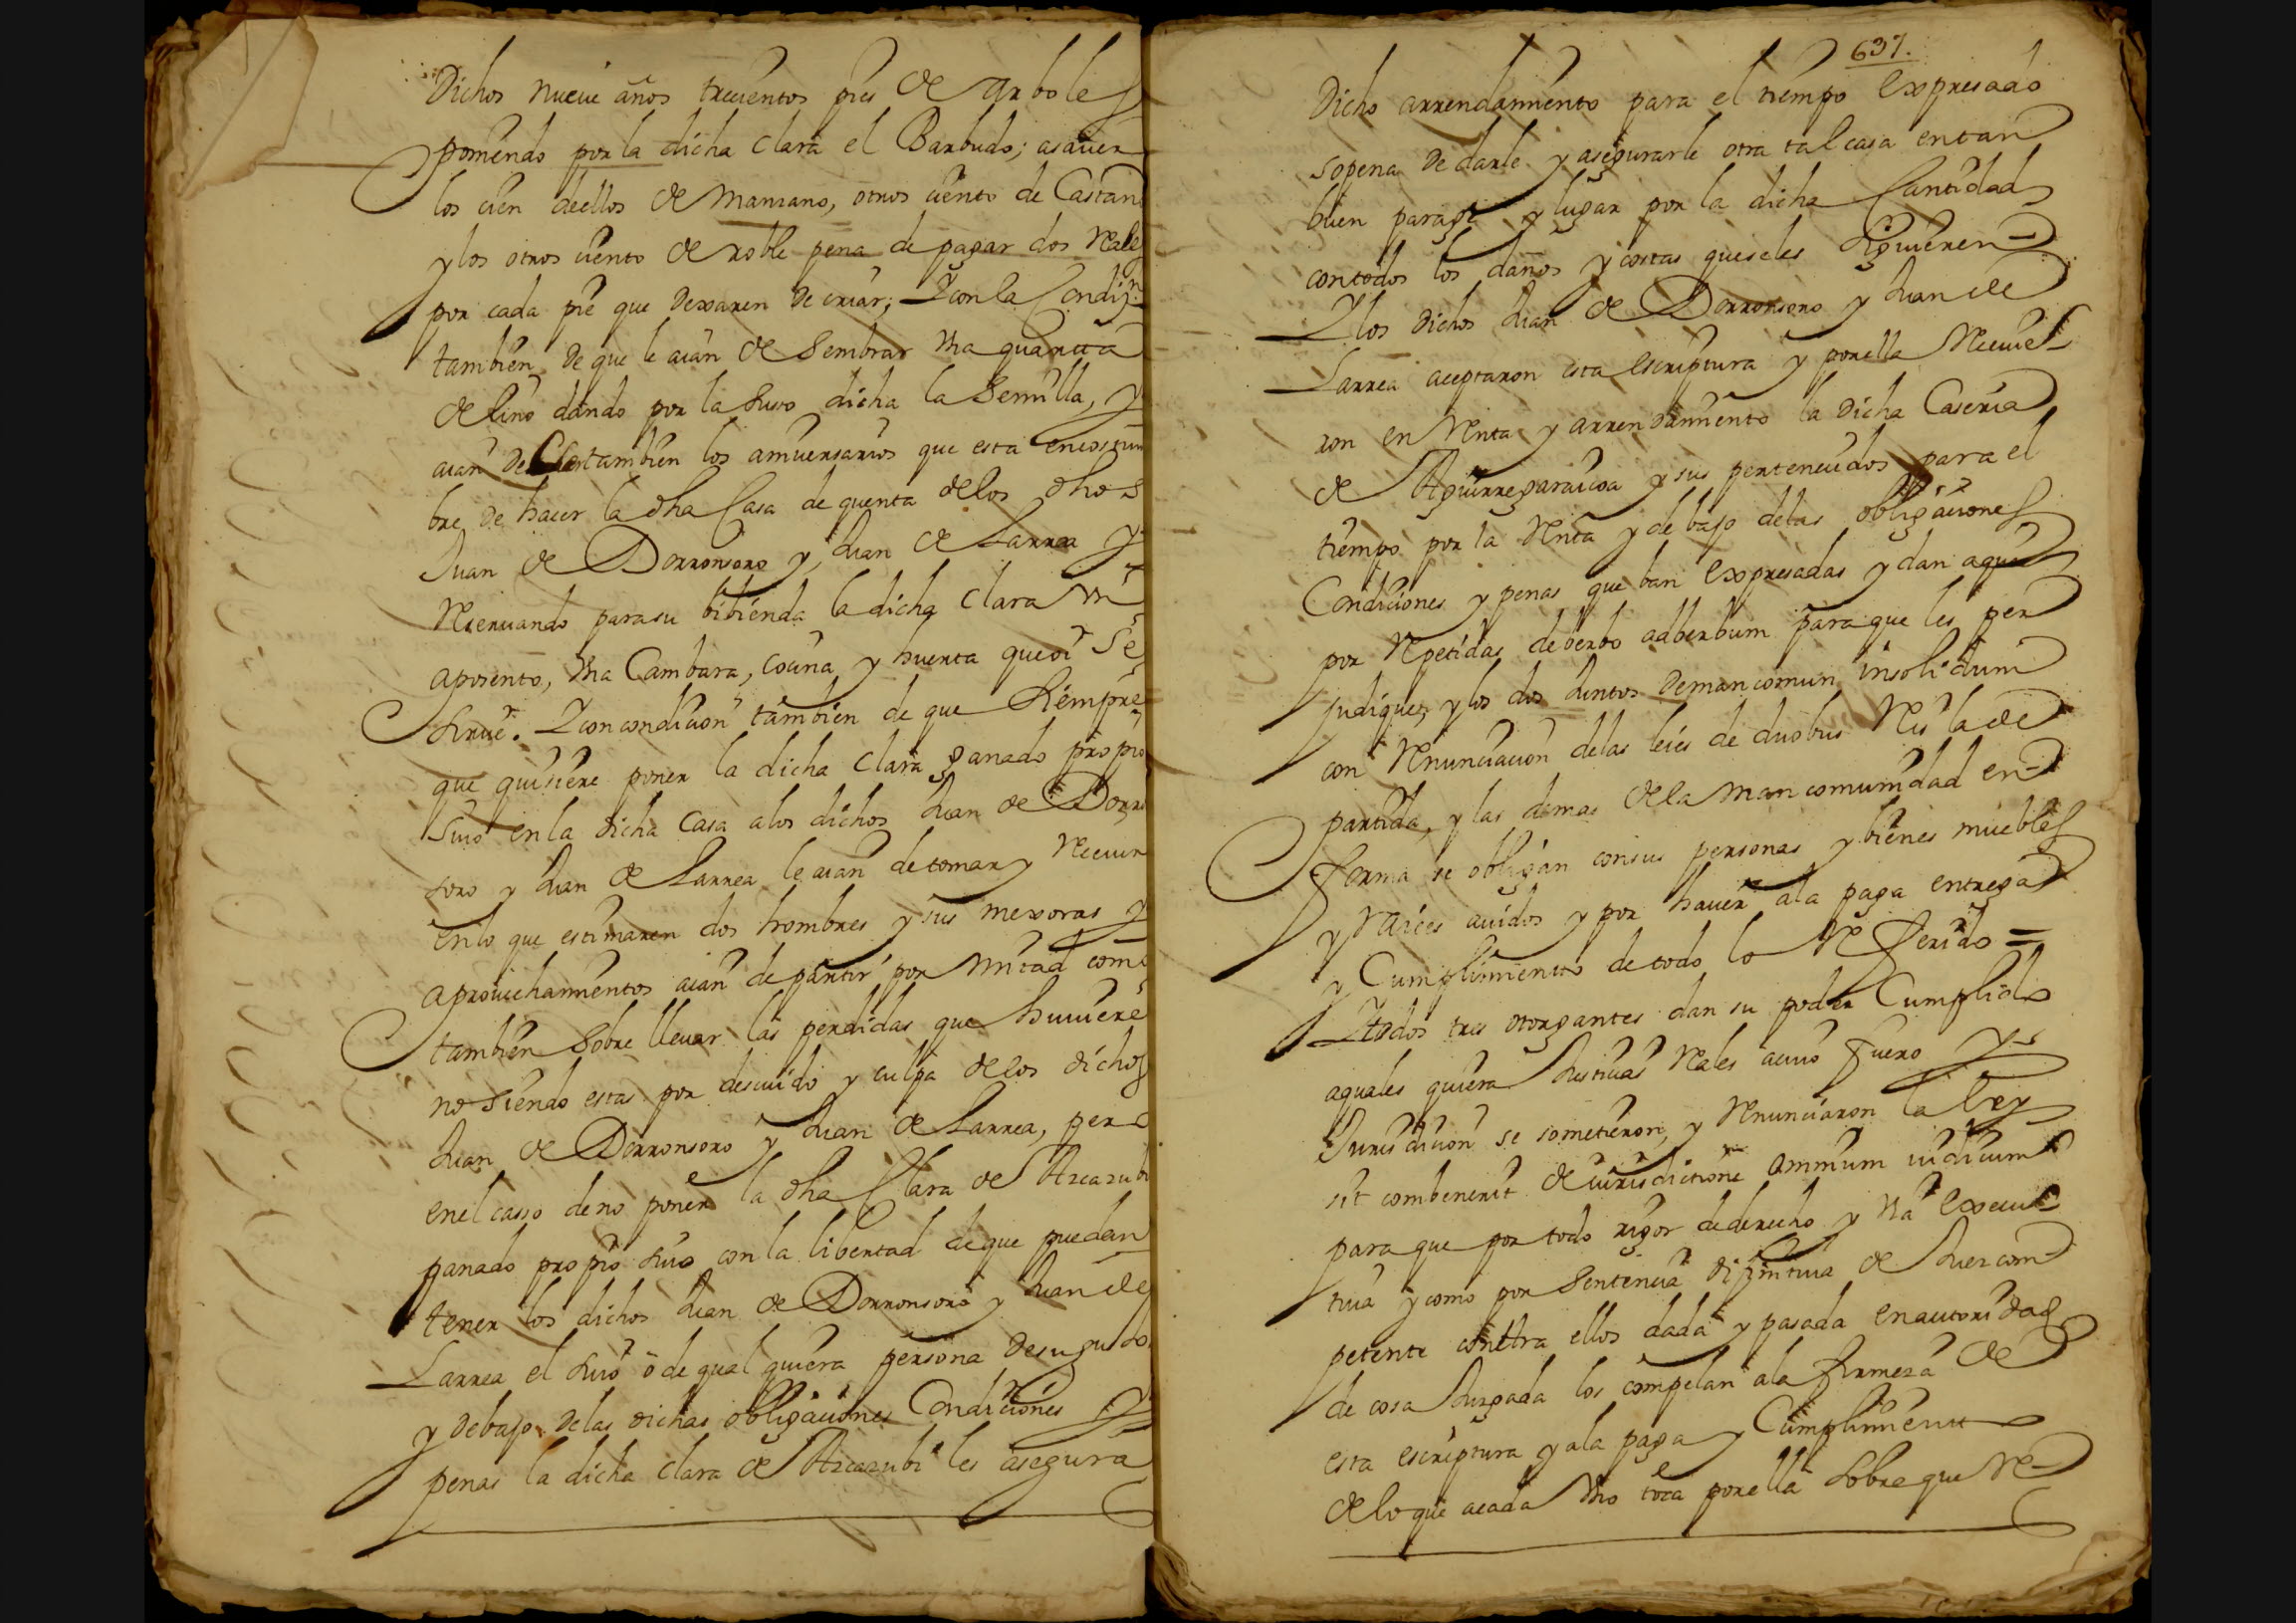 Dichos nueve años trecientos pies de arboles
poniendo por la dicha Clara el Barbado; asaver
los cien deellos de Manzano, otros ciento de Castan
y los otros ciento de roble pena de pagar dos Reales
por cada pie que dexaren de criar; Y con la Condiz.n
tambien de que le aian de Sembrar Una quarta
de lino dando por la suso dicha la Semilla, y
aian de tambien los aniversarios que esta encostum
bre de hacer la dha Casa de quenta delos dhos
Juan de Dorronsoro y Juan de Larrea y
Reservando para su bibienda la dicha Clara Un
aposento, Una Cambara, Cocina y huerta que oi Se
sirve. Y con condicion tambien de que siempre
que quisiere poner la dicha Clara ganado propio
suio en la dicha Casa a los dichos Juan de Dorron
soro y Juan de Larrea le aian de tomar y Recivir
en lo que estimaren dos hombres y sus mexoras y
aprovechamientos aian de partir por mitad como
tambien Sobre llevar las perdidas que huviere
no Siendo estas por descuido y culpa delos dichos
Juan de Dorronsoro y Juan de Larrea, pero
enel casso de no poner la dha Clara de Azcazubi
ganado propio suio con la libertad de que puedan
tener los dichos Juan de Dorronsoro y Juan de
Larrea el suio o de qual quiera persona de su gusto
y debajo delas dichas obligaciones Condiciones y
penas la dicha Clara de Azcazubi les asegura
637.
Dicho arrendamiento para el tiempo Expresado
sopena de darle y asegurarle otra tal casa en tan
buen parage y lugar por la dicha Cantidad
con todos los daños y costas queseles siguieren
Y los dichos Juan de Dorronsoro y Juan de
Larrea aceptaron esta escriptura y por ella Recivie
ron en Renta y arrendamiento la dicha Caseria
de Aguirregaraicoa y sus pertenecidos para el
tiempo por la Renta y de bajo delas obligaciones
Condiciones y penas que ban Expresadas y dan aqui
por Repetidas de berbo adberbum para que les per
judique, y los dos Juntos de mancomun insolidum
con Renunciacion delas leies de duobus Reis la de
partida, y las demas dela mancomunidad en
forma se obligan con sus personas y bienes muebles
y Raices avidos y por haver ala paga entrega
y Cumplimiento de todo lo Referido =
Y todos tres otorgantes dan su poder Cumplido
aquales quiera Justicias Reales acuio fuero y
Jurisdicion se sometieron, y Renunciaron la ley
sit combenerit de iurisdictione omnium iudicum
para que por todo rigor de derecho y Via Execu
tiva y como por Sentencia difinitiva de Juez com
petente contra ellos dada y pasada en autoridad
de cosa Juzgada los compelan ala firmeza de
esta escriptura y ala paga y Cumplimiento
delo que acada Uno toca por ella sobre que Re